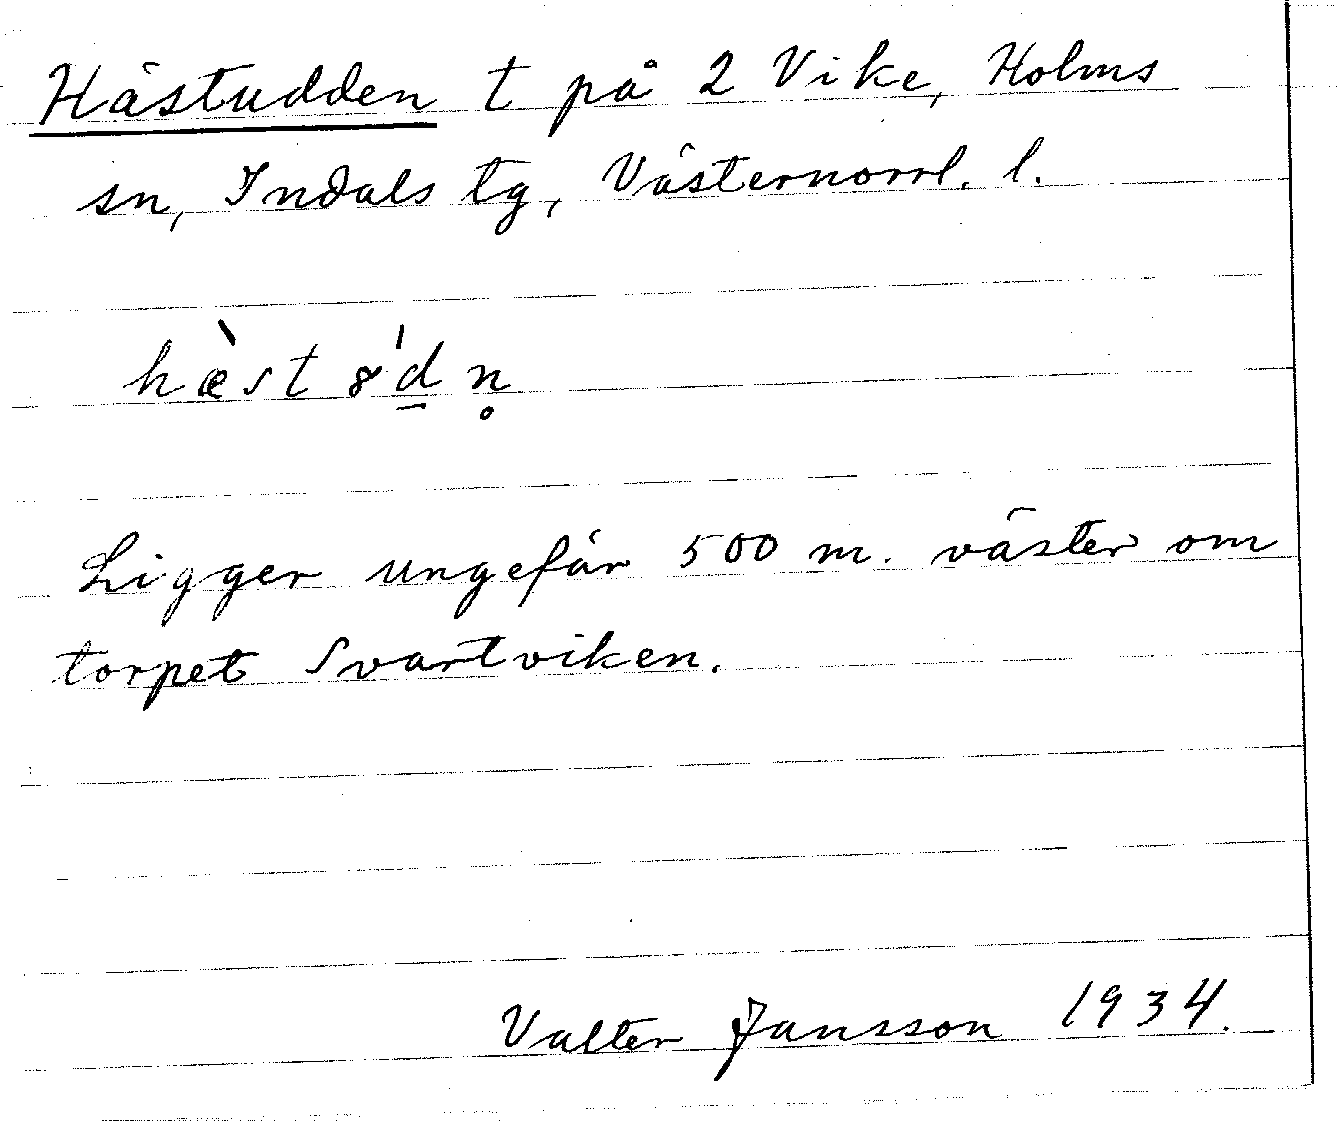 Hästudden t på 2 Vike, Holms
sn, Indals tg, Västernorrl. l.
hæ̀st 8́d̲ n̥
Ligger ungefär 500 m. väster om
torpet Svartviken.
Valter Jansson 1934.